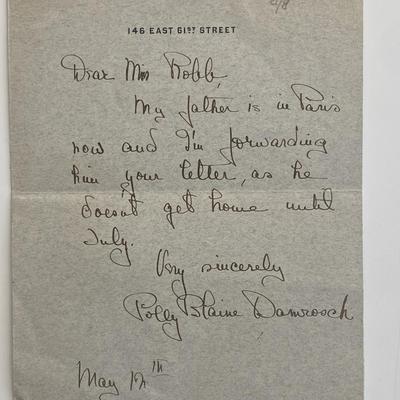 146 EAST 61ST STREET
Dear Miss Robb,
My father is in Paris
now and I'm forwarding
him your letter, as he
doesn't get home until
July.
Very sincerely
Polly Blaine Damrosch
May 12th